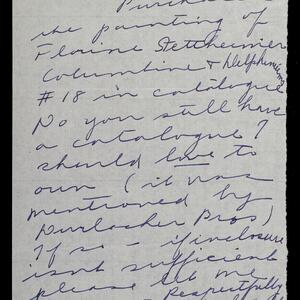 Purchased
the painting of
Florine Stettheimer
Columbine & Delphinium
#18 in catalogue
Do you still have
a catalogue? I
should love to
own (it was
mentioned by
Durlacher Bros)
If so – if inclosure
isnt sufficient
please let me
Respectfully